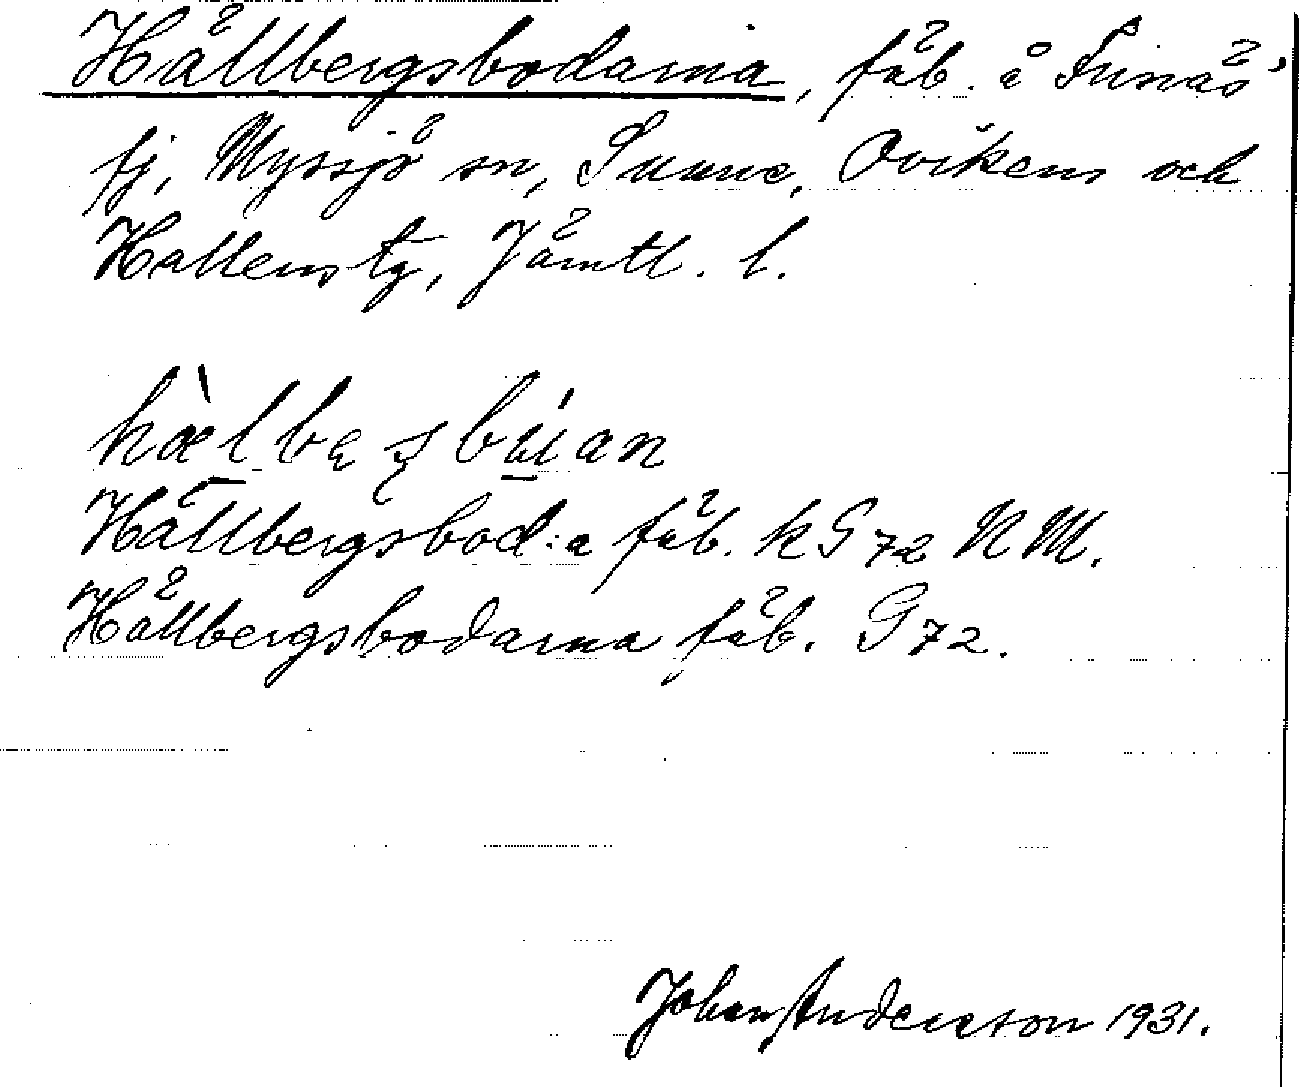 Hällbergsbodarna, fäb. å Funäs'
fj, Myssjö sn, Sunne, Ovikens och
Hallens tg, Jämtl. l.
Hällbergsbod:a fäb. k G 72 N M.
Hällbergsbodarna fäb. G 72.
Johan Andersson 1931.